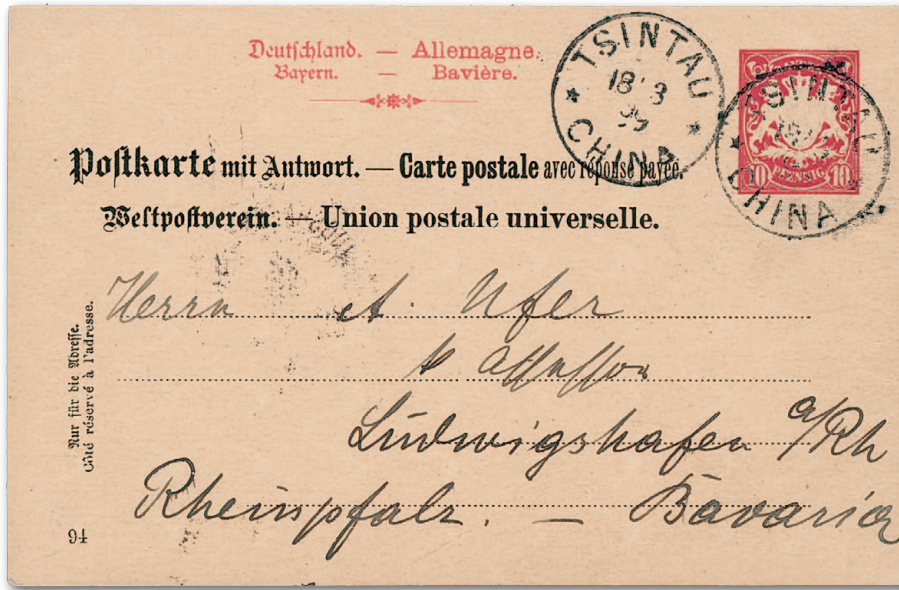 Deutschland. — Allemagne.
Bayern. — Bavière.
TSINTAU
18 3
99
CHINA
TSINTAU
CHINA
10 PFENNIG 10
Postkarte mit Antwort. — Carte postale avec réponse payée.
Weltpostverein. — Union postale universelle.
Nur für die Adresse.
Côté réservé à l'adresse.
Herrn A. Ufer
Assessor
Ludwigshafen a/Rh
Rheinpfalz. — Bavaria
94